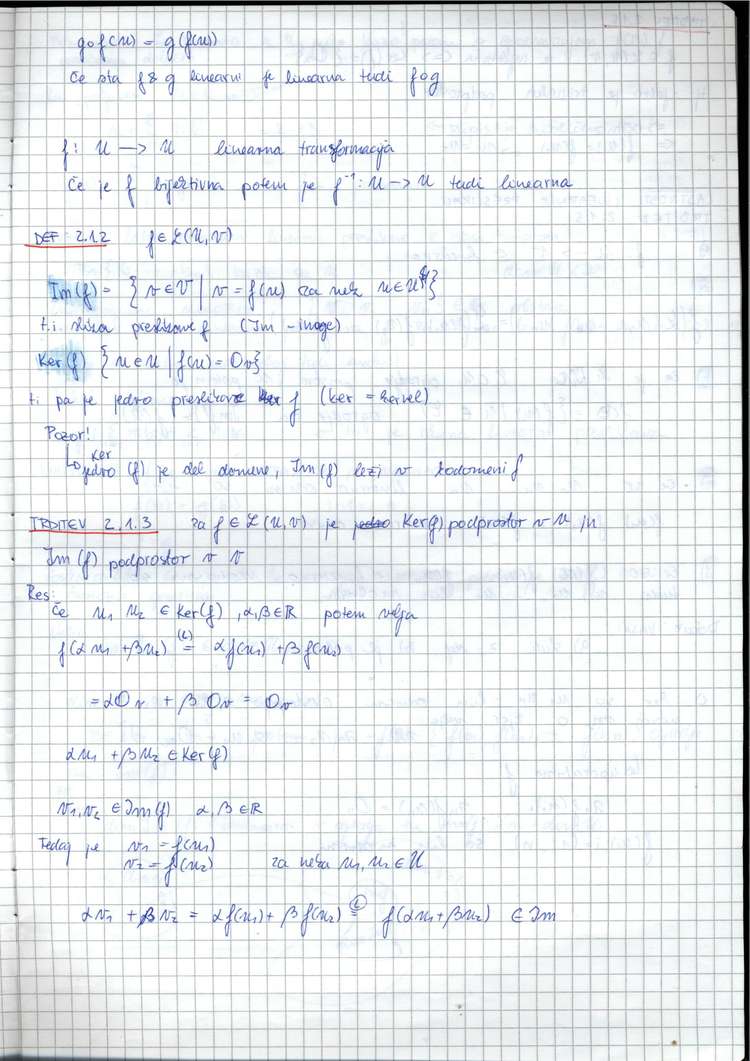 g∘f(u) = g(f(u))
Če sta f & g linearni je linearna tudi f∘g
f: U → U linearna transformacija
Če je f bijektivna potem je f⁻¹: U → U tudi linearna
DEF 2.1.2 f ∈ L(U, V)
Im(f) = { v ∈ V | v = f(u) za nek u ∈ U }
t.i. slika preslikave f (Im - image)
Ker(f) { u ∈ U | f(u) = 0v }
ti pa je jedro preslikave f (ker = kernel)
Pozor!
↳ jedro Ker (f) je del domene, Im(f) leži v kodomeni f
TRDITEV 2.1.3 za f ∈ L(U, V) je Ker(f) podprostor v U in
Im(f) podprostor v V
Res:
Če u₁ u₂ ∈ Ker(f), α, β ∈ ℝ potem velja
f(αu₁ + βu₂) (L)= αf(u₁) + βf(u₂)
= α0v + β0v = 0v
αu₁ + βu₂ ∈ Ker(f)
v₁, v₂ ∈ Im(f) α, β ∈ ℝ
Tedaj je v₁ = f(u₁)
v₂ = f(u₂) za neka u₁, u₂ ∈ U
αv₁ + βv₂ = αf(u₁) + βf(u₂) (L)= f(αu₁ + βu₂) ∈ Im